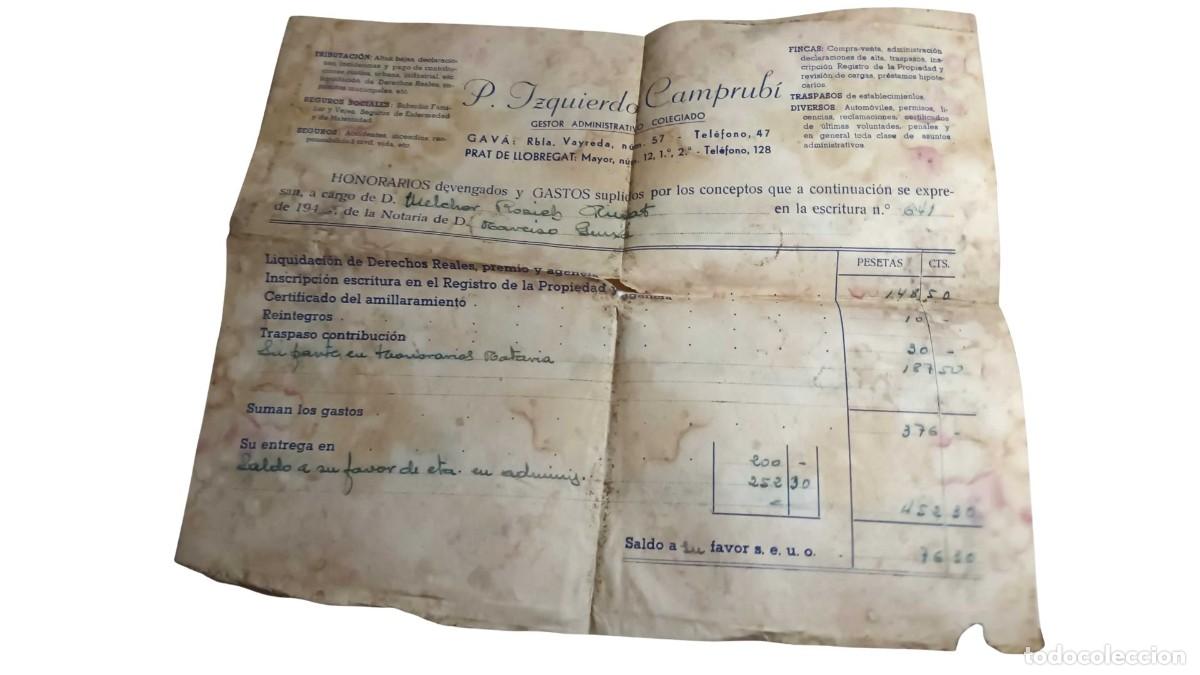 TRIBUTACIÓN: Altas bajas declaracio-
nes incidencias y pago de contribu-
ciones rústica, urbana, industrial, etc.
liquidación de Derechos Reales,
municipales, etc.
SEGUROS SOCIALES: Subsidio Fami-
liar y Vejez, Seguros de Enfermedad
y de Maternidad.
SEGUROS: Accidentes, incendios, res-
ponsabilidad civil, vida, etc.
P. Izquierdo Camprubí
GESTOR ADMINISTRATIVO COLEGIADO
GAVÁ: Rbla. Vayreda, núm. 57 - Teléfono, 47
PRAT DE LLOBREGAT: Mayor, núm. 12, 1.º, 2.ª - Teléfono, 128
FINCAS: Compra-venta, administración
declaraciones de alta, traspasos, ins-
cripción Registro de la Propiedad y
revisión de cargas, préstamos hipote-
carios.
TRASPASOS de establecimientos.
DIVERSOS: Automóviles, permisos, li-
cencias, reclamaciones, certificados
de últimas voluntades, penales y
en general toda clase de asuntos
administrativos.
HONORARIOS devengados y GASTOS suplidos por los conceptos que a continuación se expre-
san, a cargo de D. Melchor en la escritura n.º 641
de 194 , de la Notaría de D. Narciso
PESETAS CTS.
Liquidación de Derechos Reales, premio y agencia
Inscripción escritura en el Registro de la Propiedad y agencia 148 50
Certificado del amillaramiento
Reintegros 10 -
Traspaso contribución 30 -
Su parte en honorarios Notaria 187 50
Suman los gastos 376 -
Su entrega en 200 -
Saldo a su favor de cta. en adminis. 252 30
452 30
Saldo a su favor s. e. u o. 76 30
todocoleccion